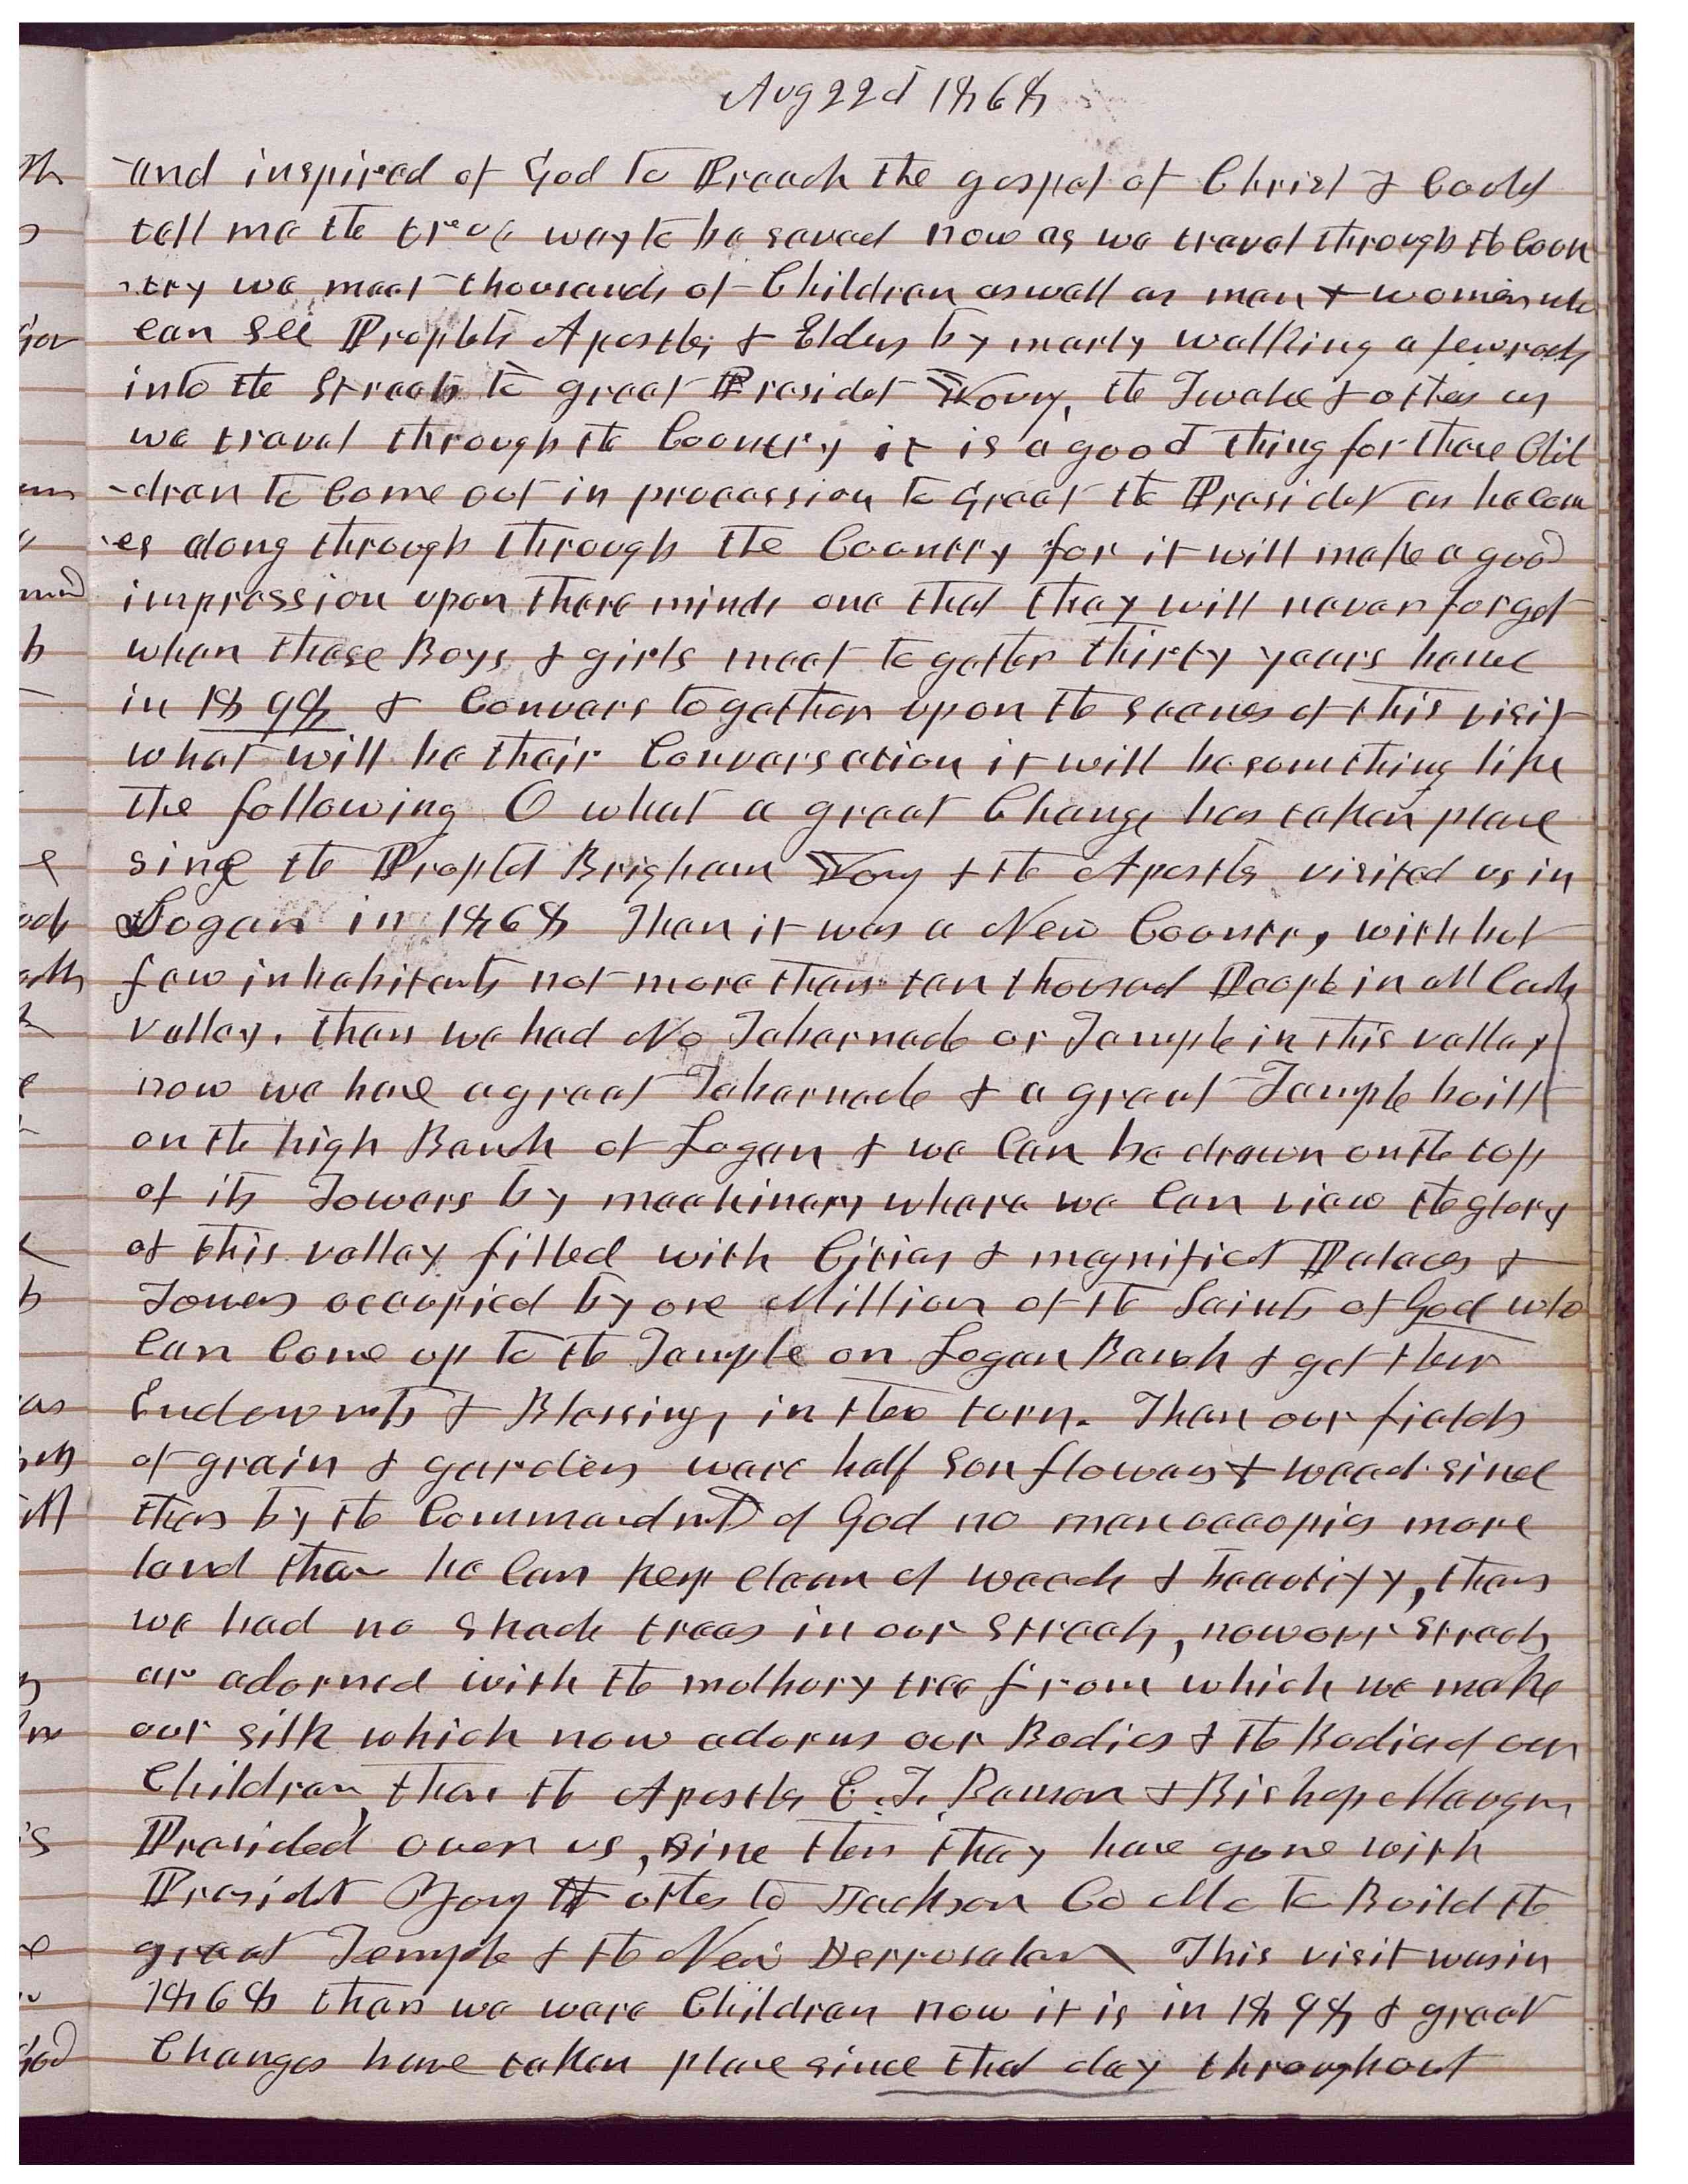 Aug 22d 1868
and inspired of God to Preach the gospel of Christ & Could
tell me the true way to be saved now as we travel through the Coun
-try we meet thousands of Children as well as men & women who
can see Prophets Apostles & Elders by marly walking a few rods
into the Streets to greet Presidet Young, the Twelve & others as
we travel through the Country it is a good thing for those Chil
-dren to Come out in procession to Greet the Presidet as he com
-es along through through the Country for it will make a good
impression upon there minds one that they will never forget
when those Boys & girls meet together thirty years hence
in 1898 & Convers together upon the scenes of this visit
what will be their Conversation it will be something like
the following O what a great Change has taken place
since the Prophet Brigham Young & the Apostles visited us in
Logan in 1868 Then it was a New Country, with but
few inhabitants not more than ten thousad People in all Cache
valley. then we had No Tabernacle or Temple in this valley
now we have a great Tabernacle & a great Temple built
on the high Bench of Logan & we Can be drawn on the top
of its Towers by machinery where we Can view the glory
of this valley filled with Cities & magnifict Palaces &
Towers occupied by one Million of the Saints of God who
Can Come up to the Temple on Logan Bench & get their
Endowmets & Blessings in their turn. Then our fields
of grain & gardens were half sun flowers & weed since
then by the Commandmet of God no man occupies more
land than he Can keep clean of weeds & beautify, then
we had no shade trees in our Streets, now our streets
ar adorned with the mulbury tree from which we make
our silk which now adorns our Bodies & the Bodies of our
Children, then the Apostle E. T. Benson & Bishop Maughn
Presided over us, since then they have gone with
Presidet Young & othes to Jackson Co Mo to Build the
great Temple & the New Jerrusalem This visit was in
1868 then we were Children now it is in 1898 & great
Changes have taken place since that day throughout